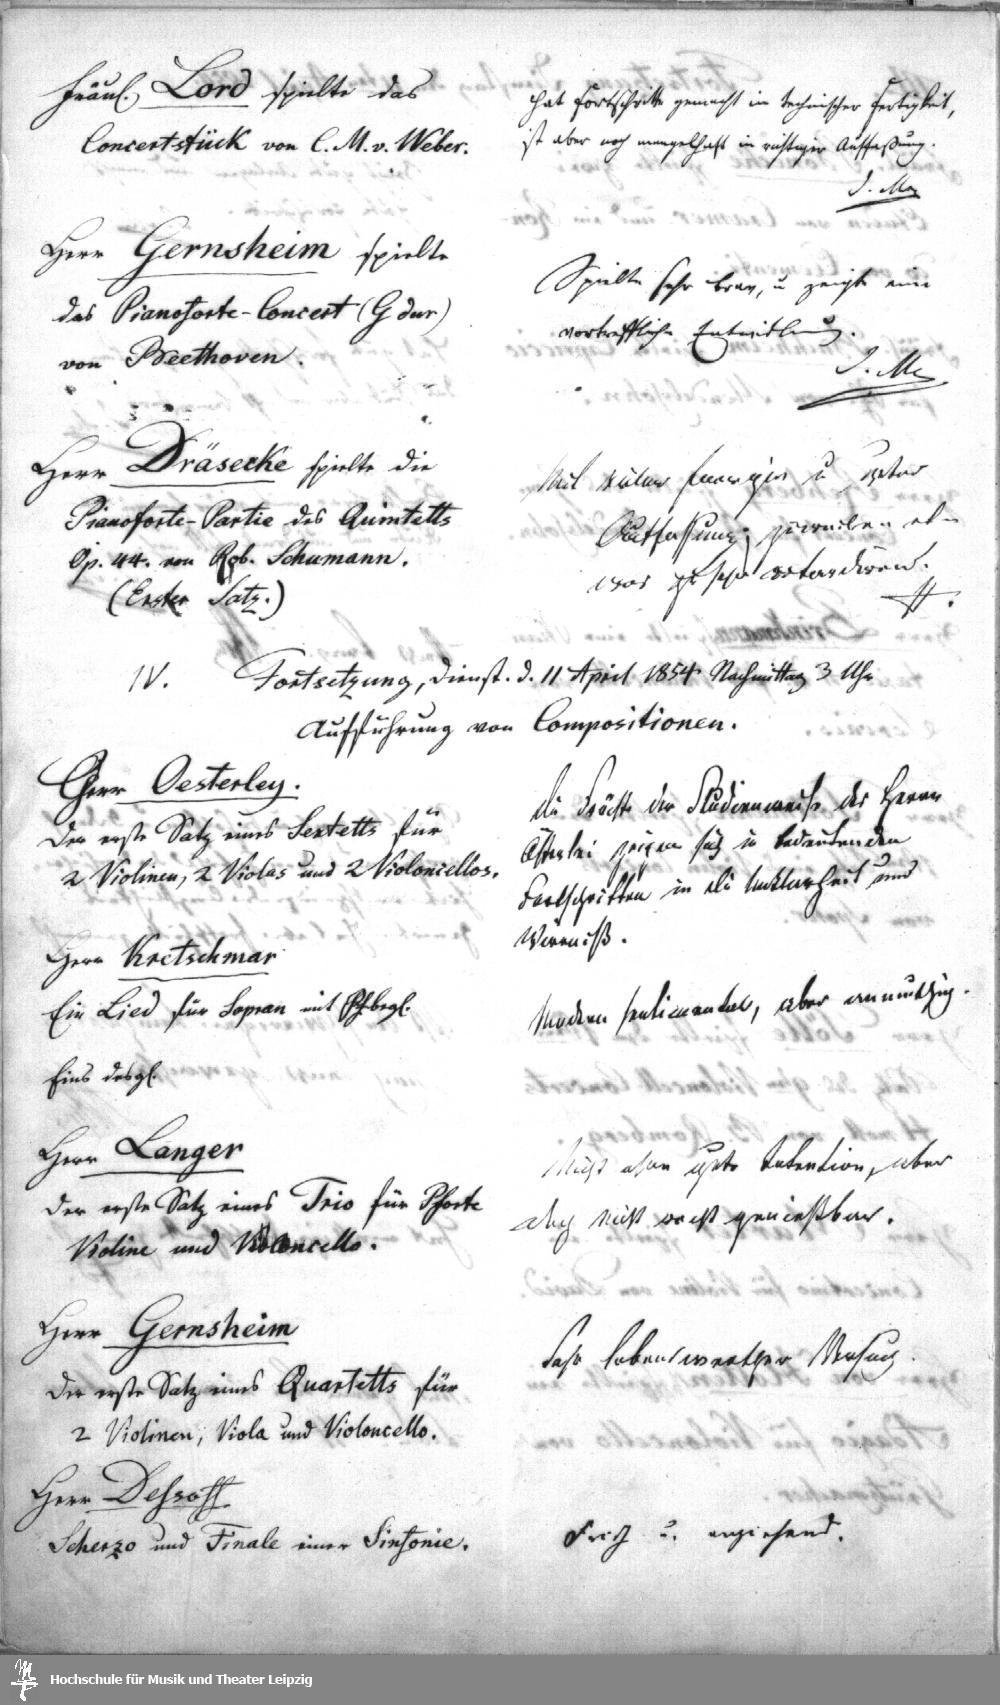 Fräul. Lord spielte das
Concertstück von C. M. v. Weber.
hat Fortschritte gemacht in technischer Fertigkeit,
ist aber noch mangelhaft in richtiger Auffaßung.
Herr Gernsheim spielte
das Pianoforte-Concert (G dur)
von Beethoven.
Spielte sehr brav, u zeigte eine
vortreffliche Entwicklung.
Herr Dräsecke spielte die
Pianoforte-Partie des Quintetts
Op. 44. von Rob. Schumann.
(Erster Satz.)
Mit Energie u guter
Auffassung; zuweilen et-
was zu sehr
IV. Fortsetzung, Dienst. d. 11 April 1854 Nachmittag 3 Uhr
Aufführung von Compositionen.
Herr Oesterley.
Der erste Satz eines Sextetts für
2 Violinen, 2 Violas und 2 Violoncellos.
Die Früchte der Studienweise des Herrn
Österlei zeigen sich in bedeutenden
Fortschritten in die Unklarheit und
Wirrniß.
Herr Kretschmar
Ein Lied für Sopran mit Pfbegl.
Eins desgl.
Modern sentimental, aber anmuthig.
Herr Langer
Der erste Satz eines Trio für Pforte
Violine und Violoncello.
Nicht ohne gute Intention, aber
doch nicht recht genießbar.
Herr Gernsheim
Der erste Satz eines Quartetts für
2 Violinen, Viola und Violoncello.
Sehr lobenswerther Versuch.
Herr Dessoff
Scherzo und Finale einer Sinfonie.
Frisch u. anziehend.
Hochschule für Musik und Theater Leipzig